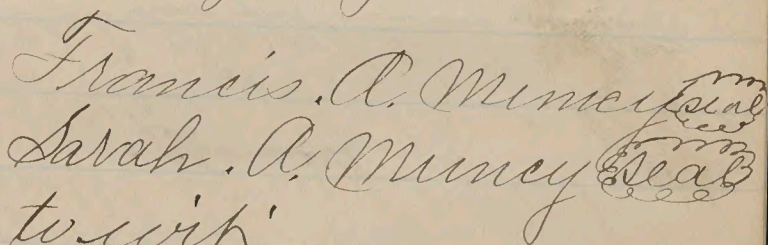 Francis. A. Muncy seal
Sarah. A. Muncy seal
to wit;